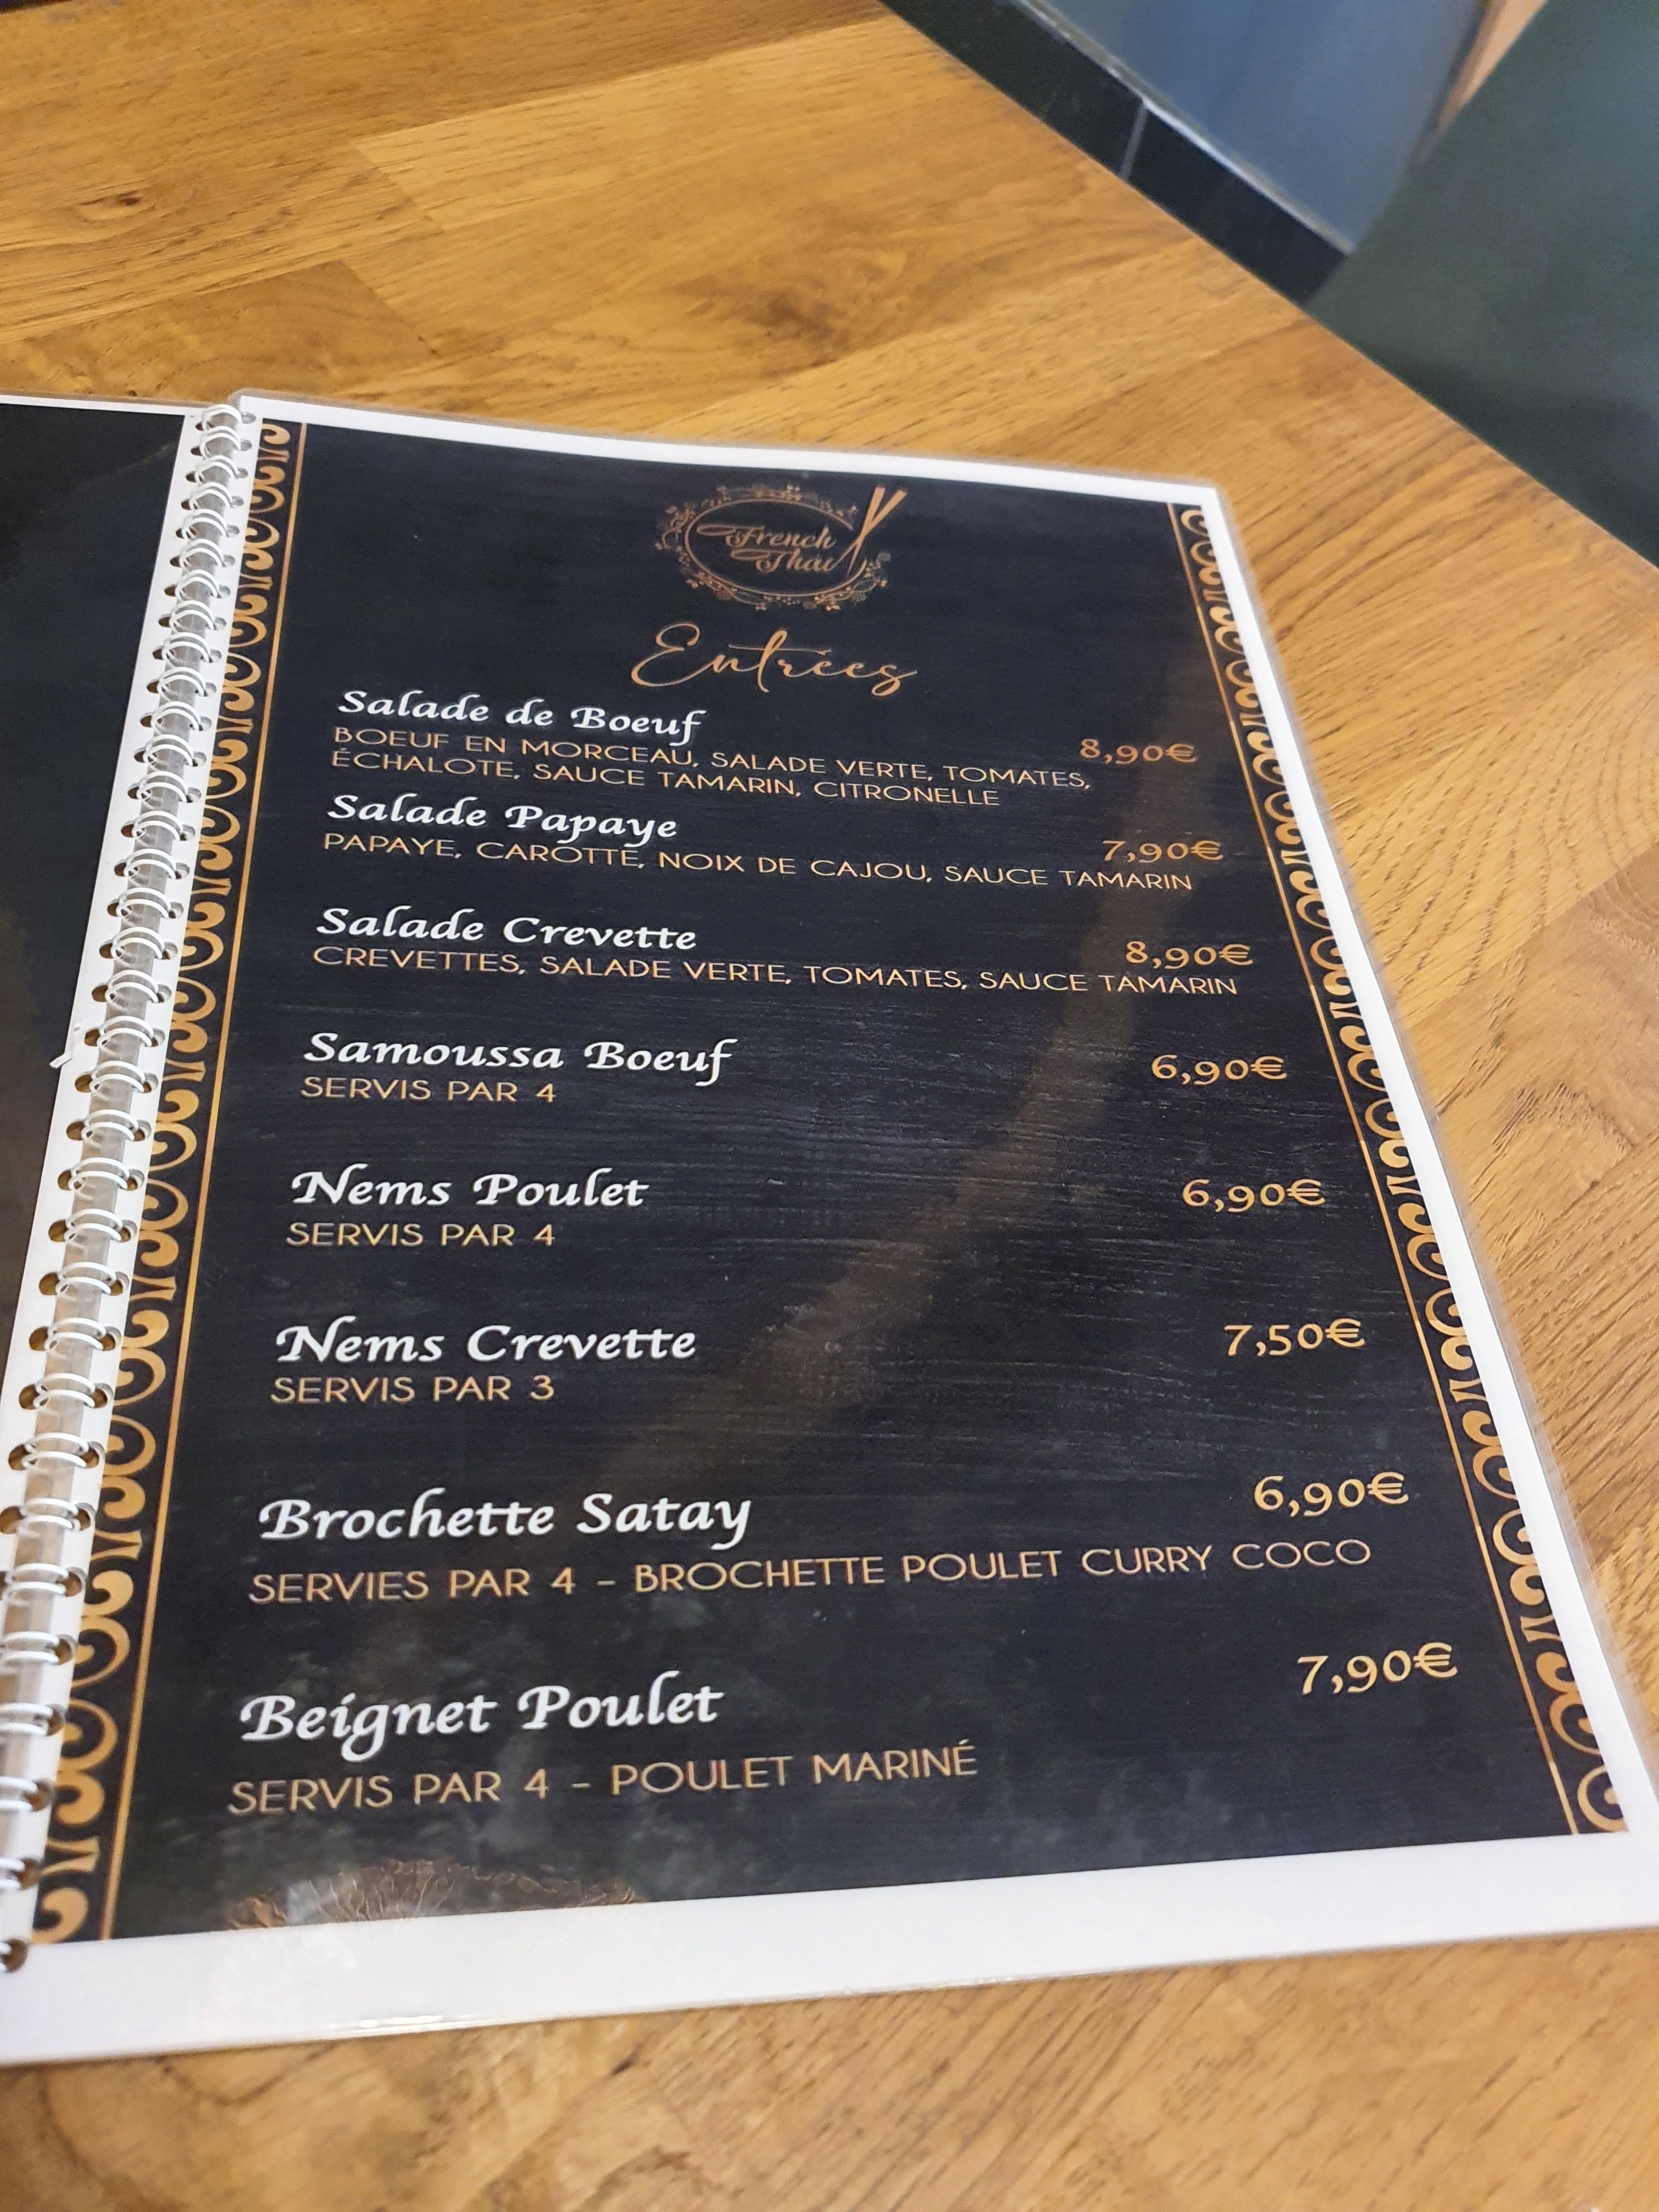 French
Thai
Entrées
Salade de Boeuf
8,90€
BOEUF EN MORCEAU, SALADE VERTE, TOMATES,
ÉCHALOTE, SAUCE TAMARIN, CITRONELLE
Salade Papaye
7,90€
PAPAYE, CAROTTE, NOIX DE CAJOU, SAUCE TAMARIN
Salade Crevette
8,90€
CREVETTES, SALADE VERTE, TOMATES, SAUCE TAMARIN
Samoussa Boeuf
6,90€
SERVIS PAR 4
Nems Poulet
6,90€
SERVIS PAR 4
Nems Crevette
7,50€
SERVIS PAR 3
Brochette Satay
6,90€
SERVIES PAR 4 – BROCHETTE POULET CURRY COCO
Beignet Poulet
7,90€
SERVIS PAR 4 – POULET MARINÉ